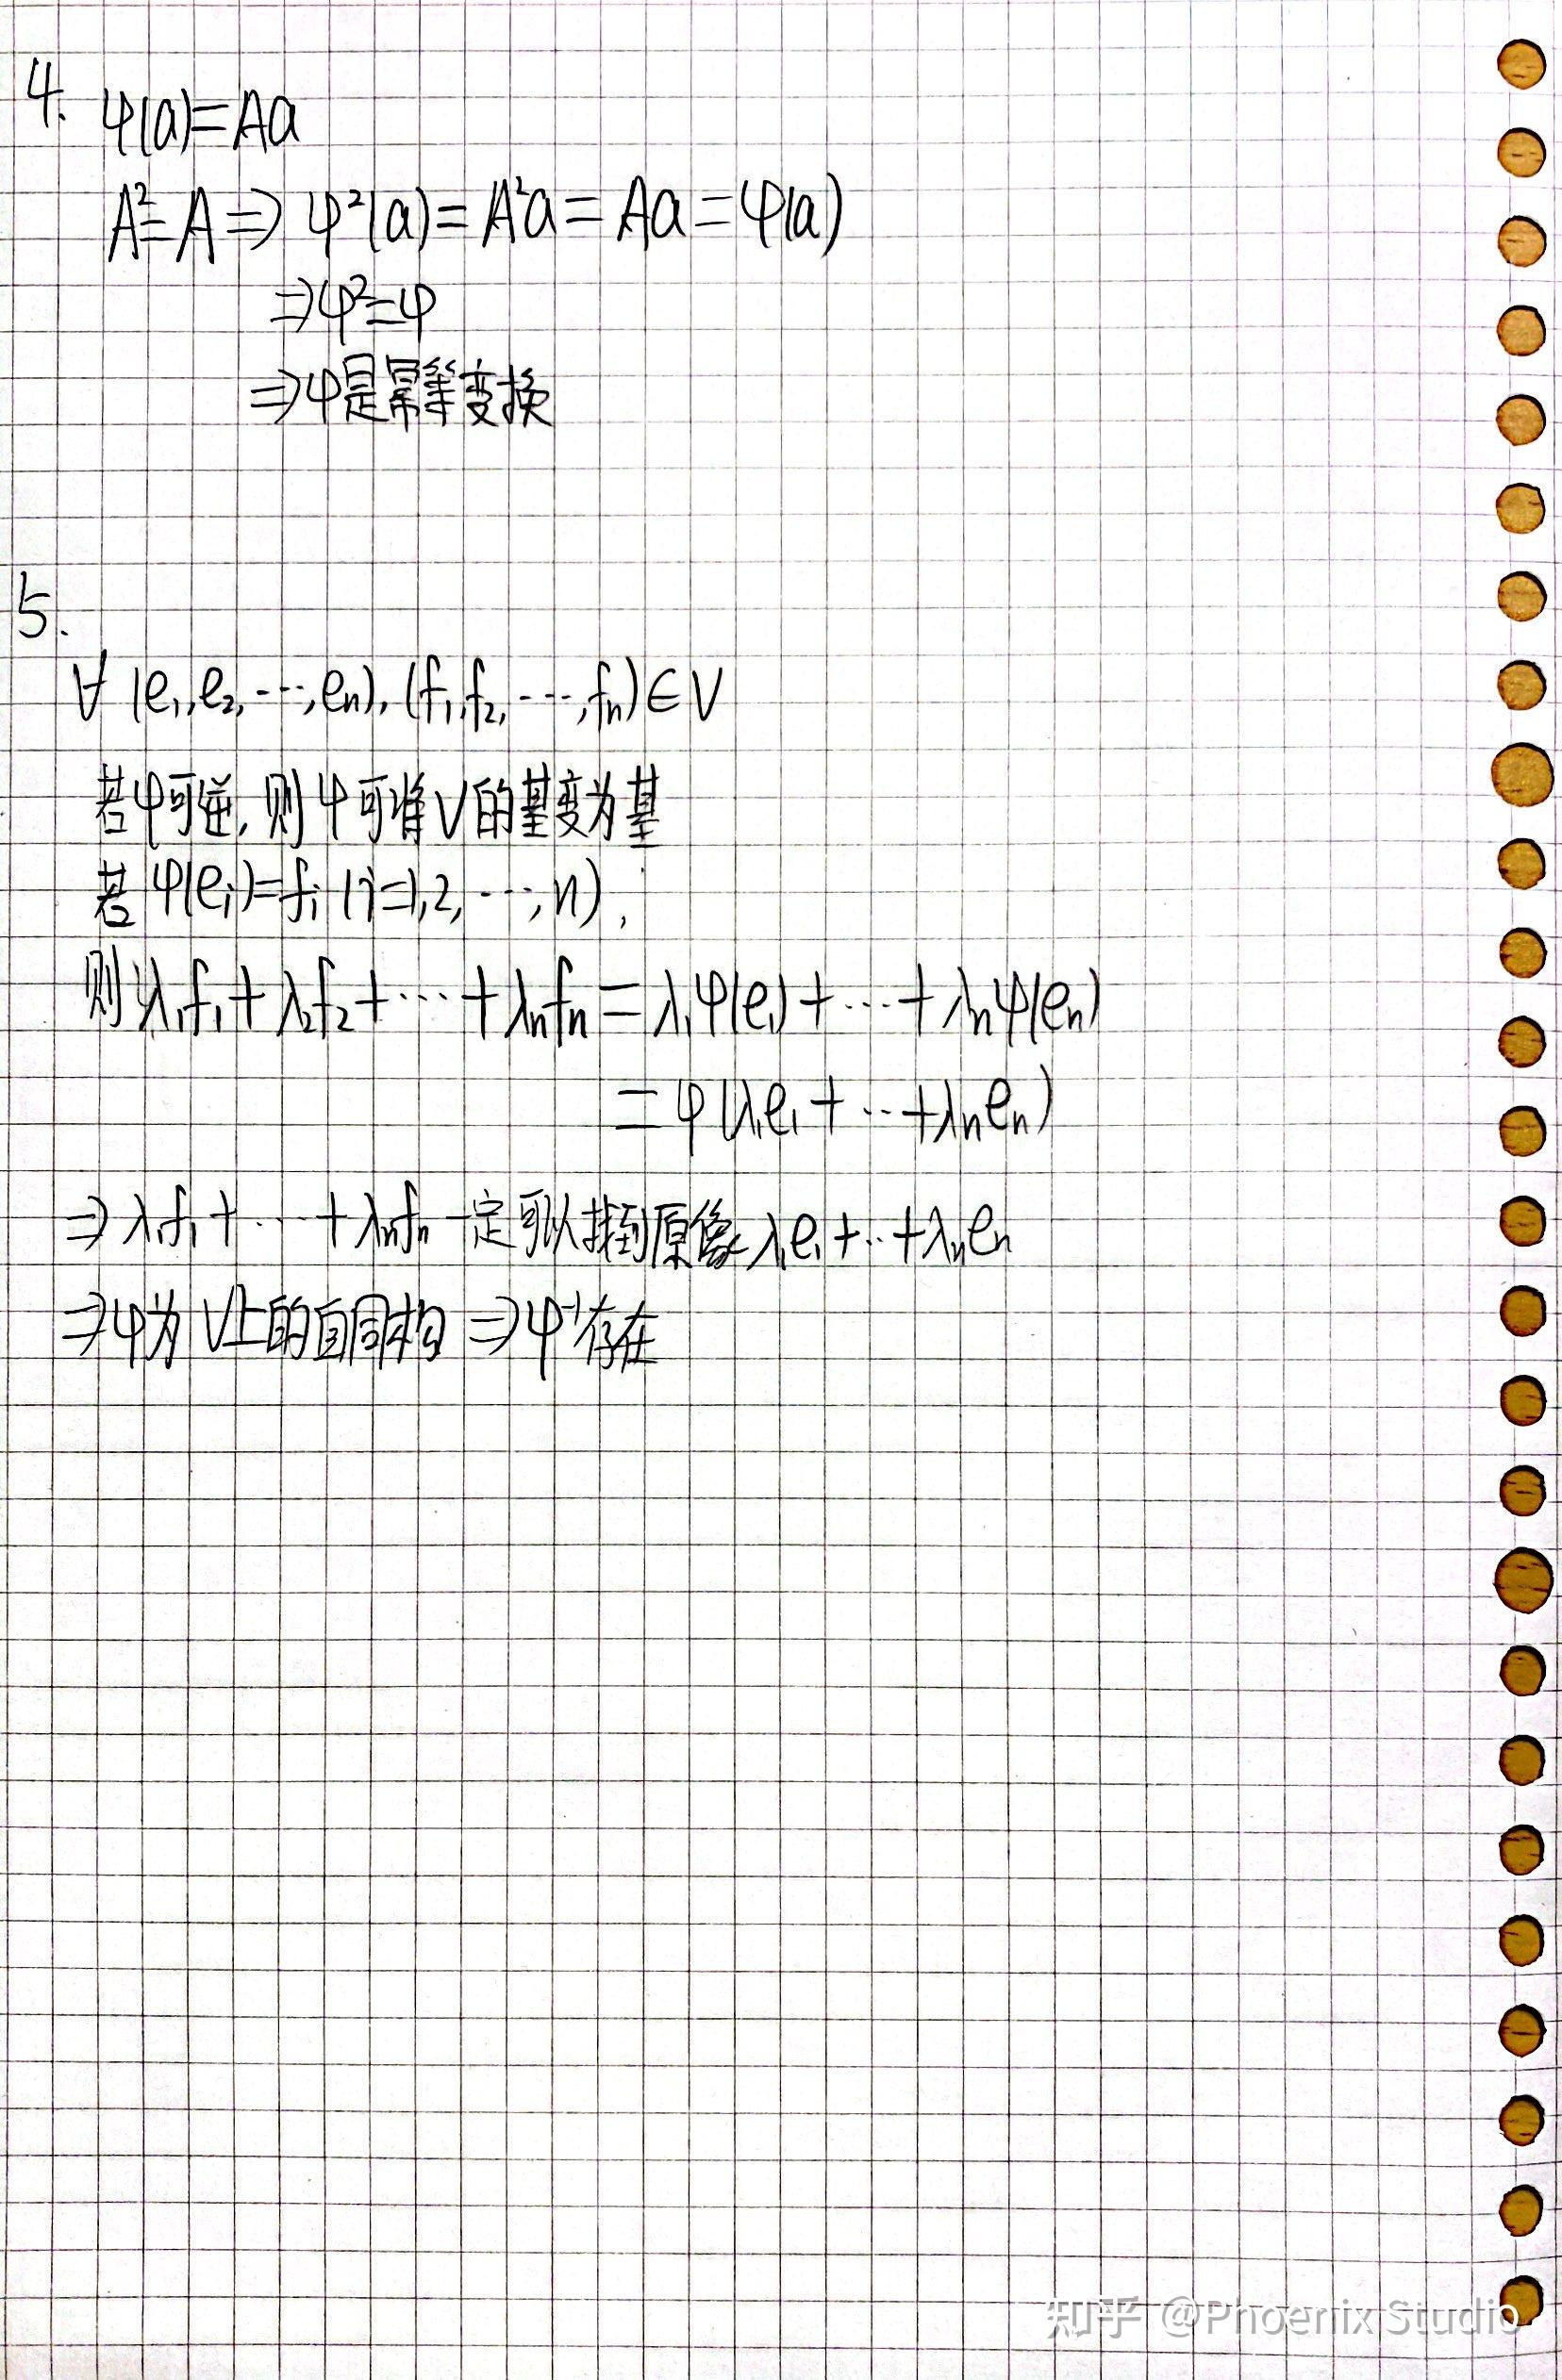 4. φ(a)=Aa
A²=A⇒φ²(a)=A²a=Aa=φ(a)
⇒φ²=φ
⇒φ是幂等变换
5.
∀(e₁,e₂,…,eₙ),(f₁,f₂,…,fₙ)∈V
若φ可逆,则φ可将V的基变为基
若φ(eᵢ)=fᵢ(i=1,2,…,n),
则λ₁f₁+λ₂f₂+…+λₙfₙ=λ₁φ(e₁)+…+λₙφ(eₙ)
=φ(λ₁e₁+…+λₙeₙ)
⇒λ₁f₁+…+λₙfₙ一定可以找到原像λ₁e₁+…+λₙeₙ
⇒φ为V上的自同构⇒φ⁻¹存在
知乎 @Phoenix Studio